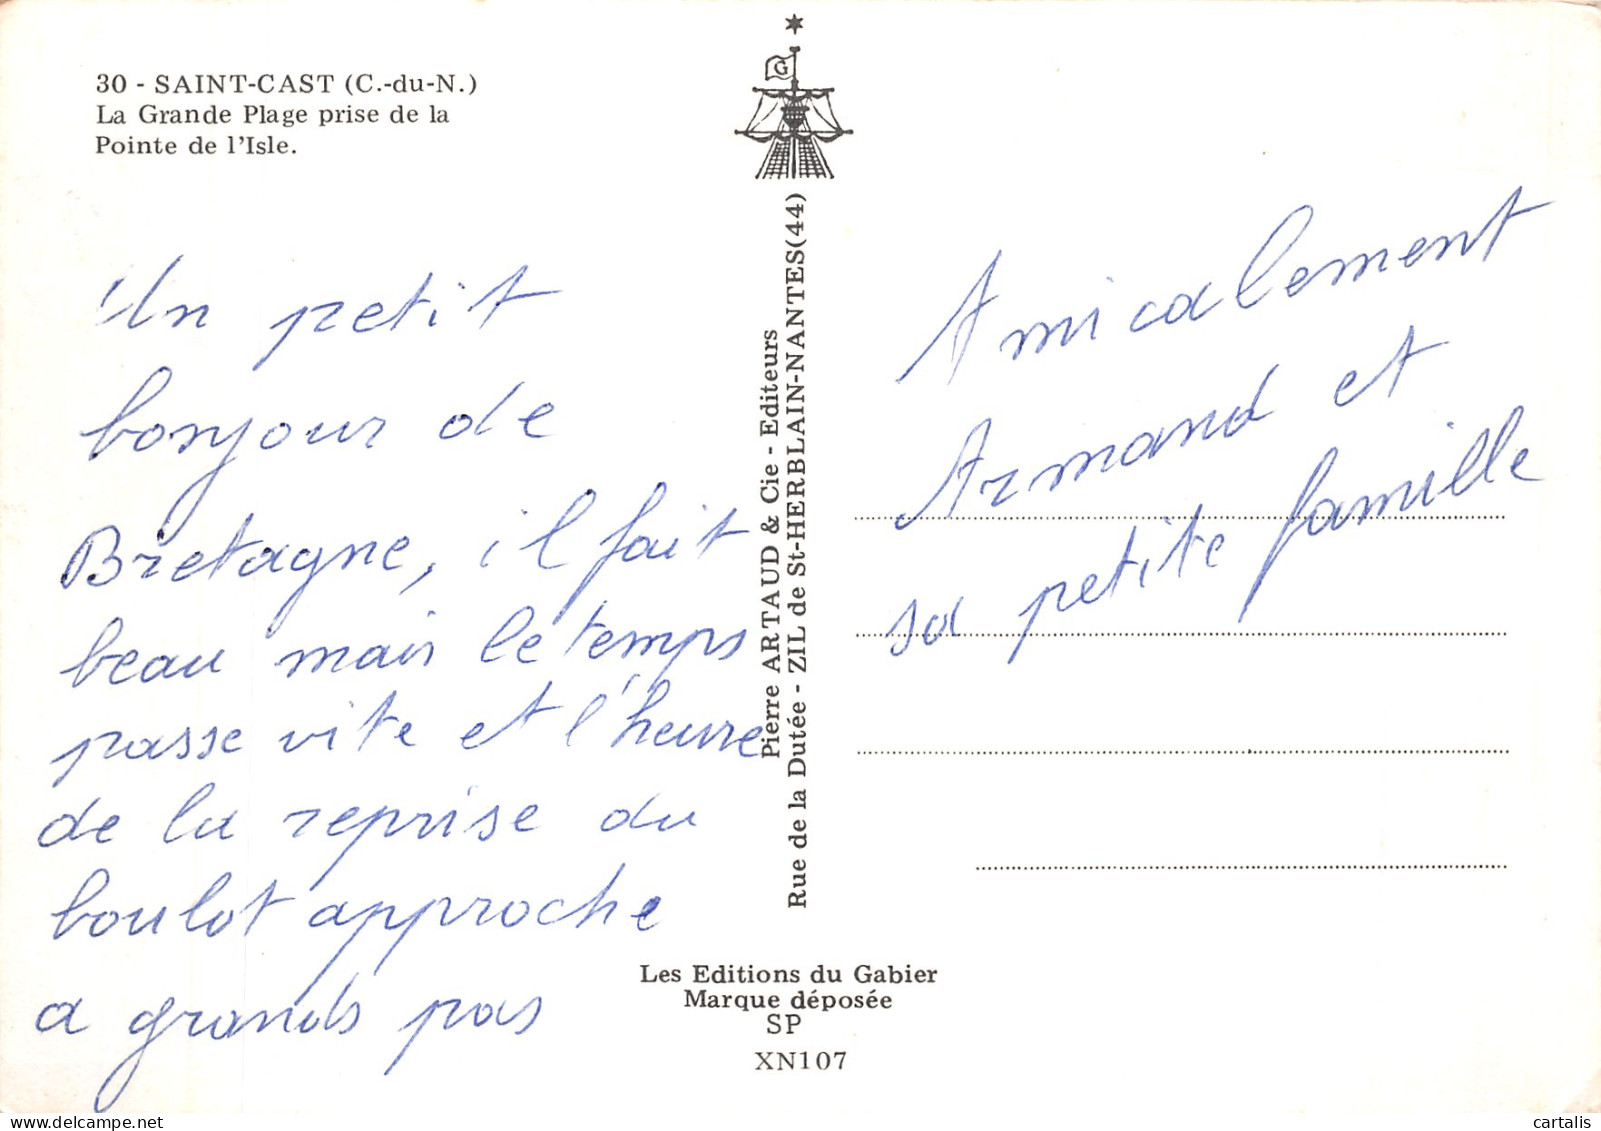 30 - SAINT-CAST (C.-du-N.)
La Grande Plage prise de la
Pointe de l'Isle.
G
Un petit
bonjour de
Bretagne, il fait
beau mais le temps
passe vite et l'heure
de la reprise du
boulot approche
a grands pas
Pierre ARTAUD & Cie - Editeurs
Rue de la Dutée - ZIL de St-HERBLAIN-NANTES(44)
Amicalement
Armand et
sa petite famille
Les Editions du Gabier
Marque déposée
SP
XN107
cartalis